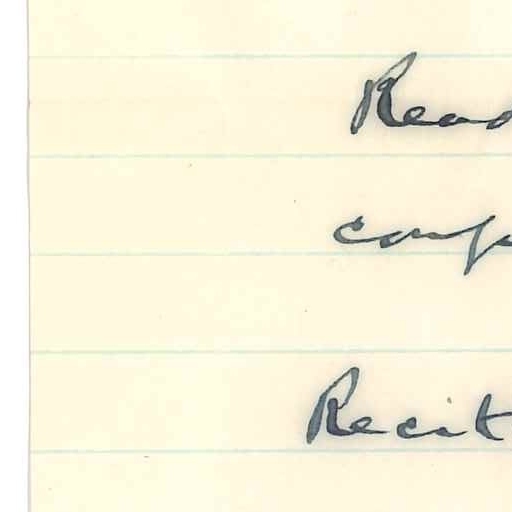 Read
comp
Recit